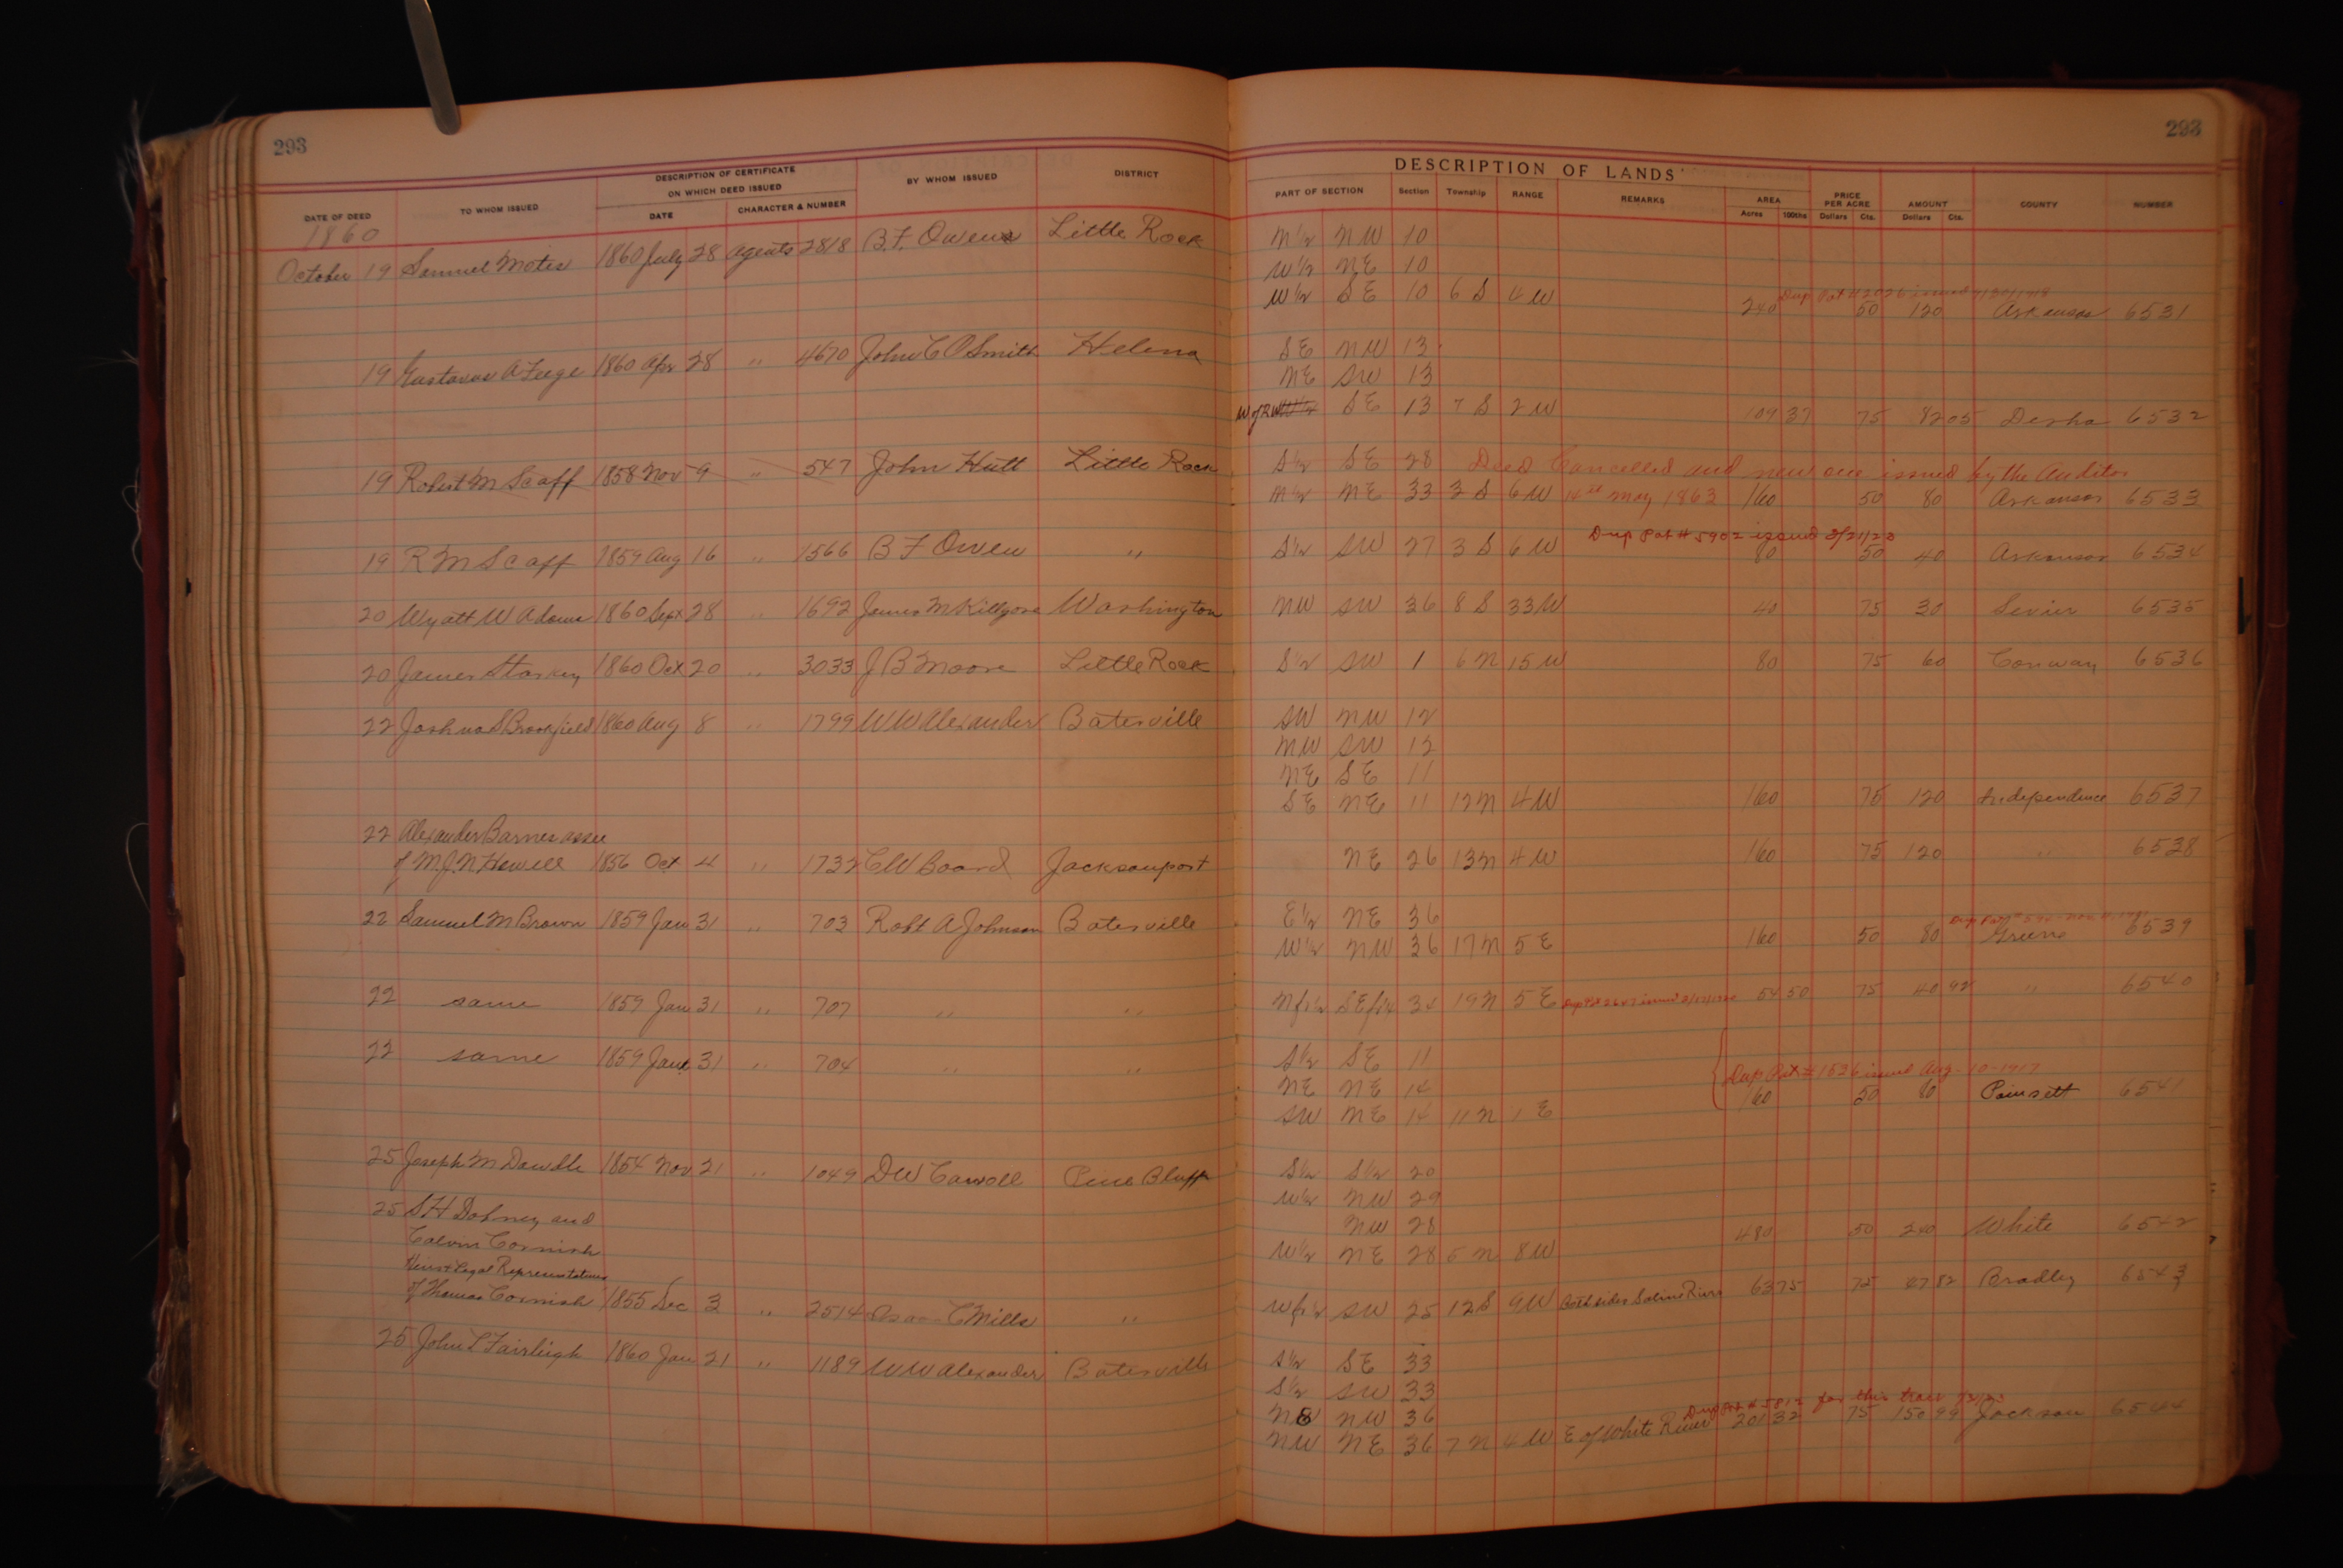 293
293
DESCRIPTION OF LANDS
DESCRIPTION OF CERTIFICATE
ON WHICH DEED ISSUED
DATE OF DEED TO WHOM ISSUED DATE CHARACTER & NUMBER BY WHOM ISSUED DISTRICT PART OF SECTION Section Township RANGE REMARKS AREA PRICE PER ACRE AMOUNT COUNTY NUMBER
Acres 100ths Dollars Cts. Dollars Cts.
1860
October 19 Samuel Motes 1860 July 28 Agents 2818 B. F. Owen Little Rock N 1/2 NW 10
W 1/2 NE 10
Dup Pat issued
W 1/2 SE 10 6 S 4 W 240 50 120 Arkansas 6531
19 Gustavus A 1860 Apr 28 " 4670 John C O Smith Helena SE NW 13
NE SW 13
W of R SE 13 7 S 2 W 109 37 75 82 05 Desha 6532
19 Robert M Scaff 1858 Nov 9 " 547 John Hutt Little Rock S 1/2 SE 28 Deed Cancelled and new one issued by the Auditor
N 1/2 NE 33 3 S 6 W 14th May 1863 160 50 80 Arkansas 6533
Dup Pat # 5902 issued
19 R M Scaff 1859 Aug 16 " 1566 B F Owen " S 1/2 SW 27 3 S 6 W 80 50 40 Arkansas 6534
20 Wyatt W Adams 1860 Sept 28 " 1692 James M Killgore Washington NW SW 36 8 S 33 W 40 75 30 Sevier 6535
20 James Starkey 1860 Oct 20 " 3033 J B Moore Little Rock S 1/2 SW 1 6 N 15 W 80 75 60 Conway 6536
22 Joshua S Brookfield 1860 Aug 8 " 1799 W W Alexander Batesville SW NW 12
NW SW 12
NE SE 11
SE NE 11 12 N 4 W 160 75 120 Independence 6537
22 Alexander Barnes assee
of M. J. N Howell 1856 Oct 4 " 1732 C W Board Jacksonport NE 26 13 N 4 W 160 75 120 " 6538
22 Samuel M Brown 1859 Jan 31 " 703 Robt A Johnson Batesville E 1/2 NE 36
Dup Pat
W 1/2 NW 36 17 N 5 E 160 50 80 Greene 6539
22 same 1859 Jan 31 " 707 " " N fr 1/2 SE fr 1/4 34 19 N 5 E Dup Pat issued 54 50 75 40 92 " 6540
22 same 1859 Jan 31 " 704 " " S 1/2 SE 11
NE NE 14 Dup Pat # 1536 issued Aug-10-1917
SW NE 14 11 N 1 E 160 50 80 Poinsett 6541
25 Joseph M Dowdle 1854 Nov 21 " 1049 D W Carroll Pine Bluff S 1/2 S 1/2 20
W 1/2 NW 29
NW 28
W 1/2 NE 28 5 N 8 W 480 50 240 White 6542
25 S H Dobney and
Calvin Cornish
Heirs & Legal Representatives
of Thomas Cornish 1855 Dec 3 " 2514 Isaac C Mills " W fr 1/2 SW 25 12 S 9 W Both sides Saline River 63 75 75 47 82 Bradley 6543
25 John L Fairleigh 1860 Jan 21 " 1189 W W Alexander Batesville S 1/2 SE 33
S 1/2 SW 33
NE NW 36 Dup Pat # 5812 for this tract
NW NE 36 7 N 4 W E of White River 201 32 75 150 99 Jackson 6544